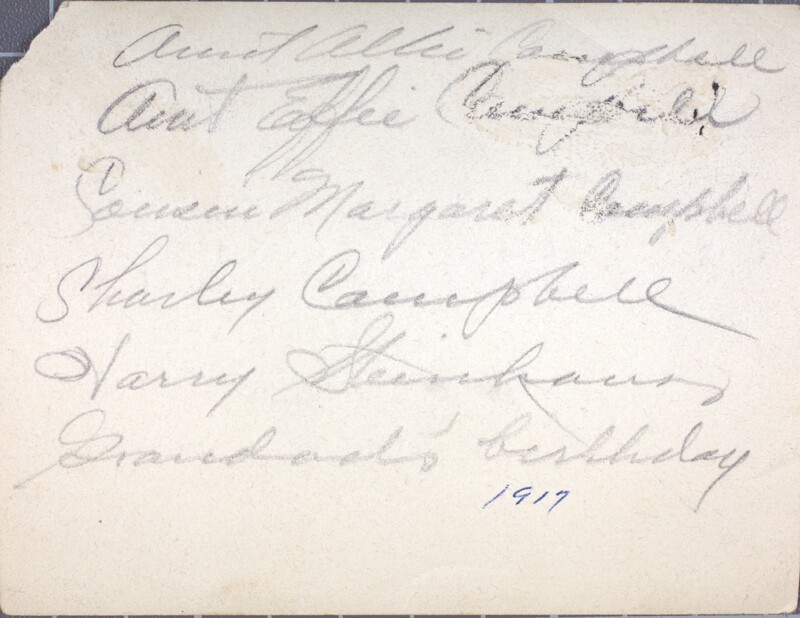 Aunt Allie Campbell
Aunt Effie Campbell
Cousin Margaret Campbell
Sharley Campbell
Harry Steinhaus
Grandad's birthday
1917